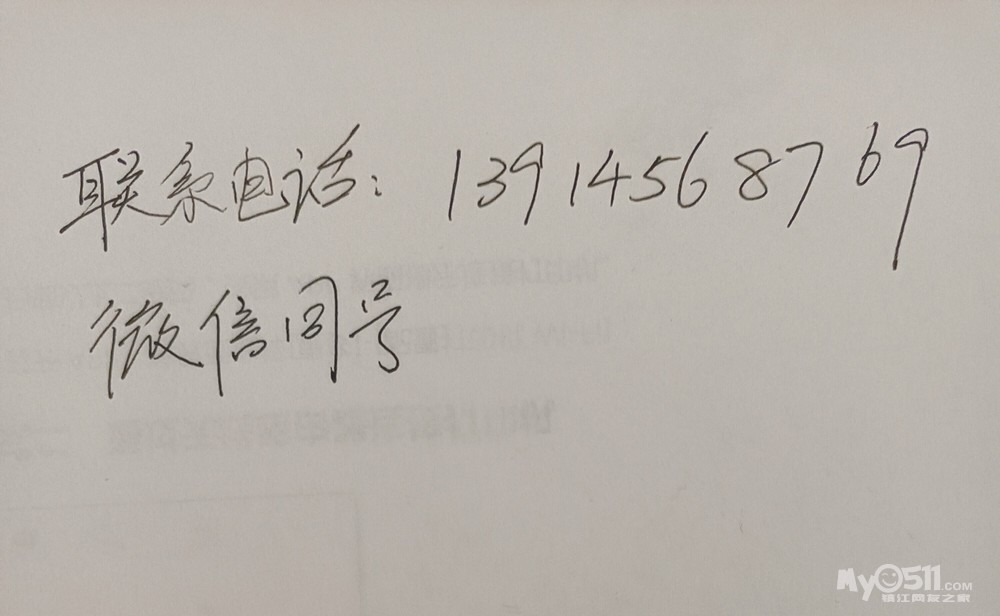 联系电话：13914568769
微信同号
My0511.COM
镇江网友之家